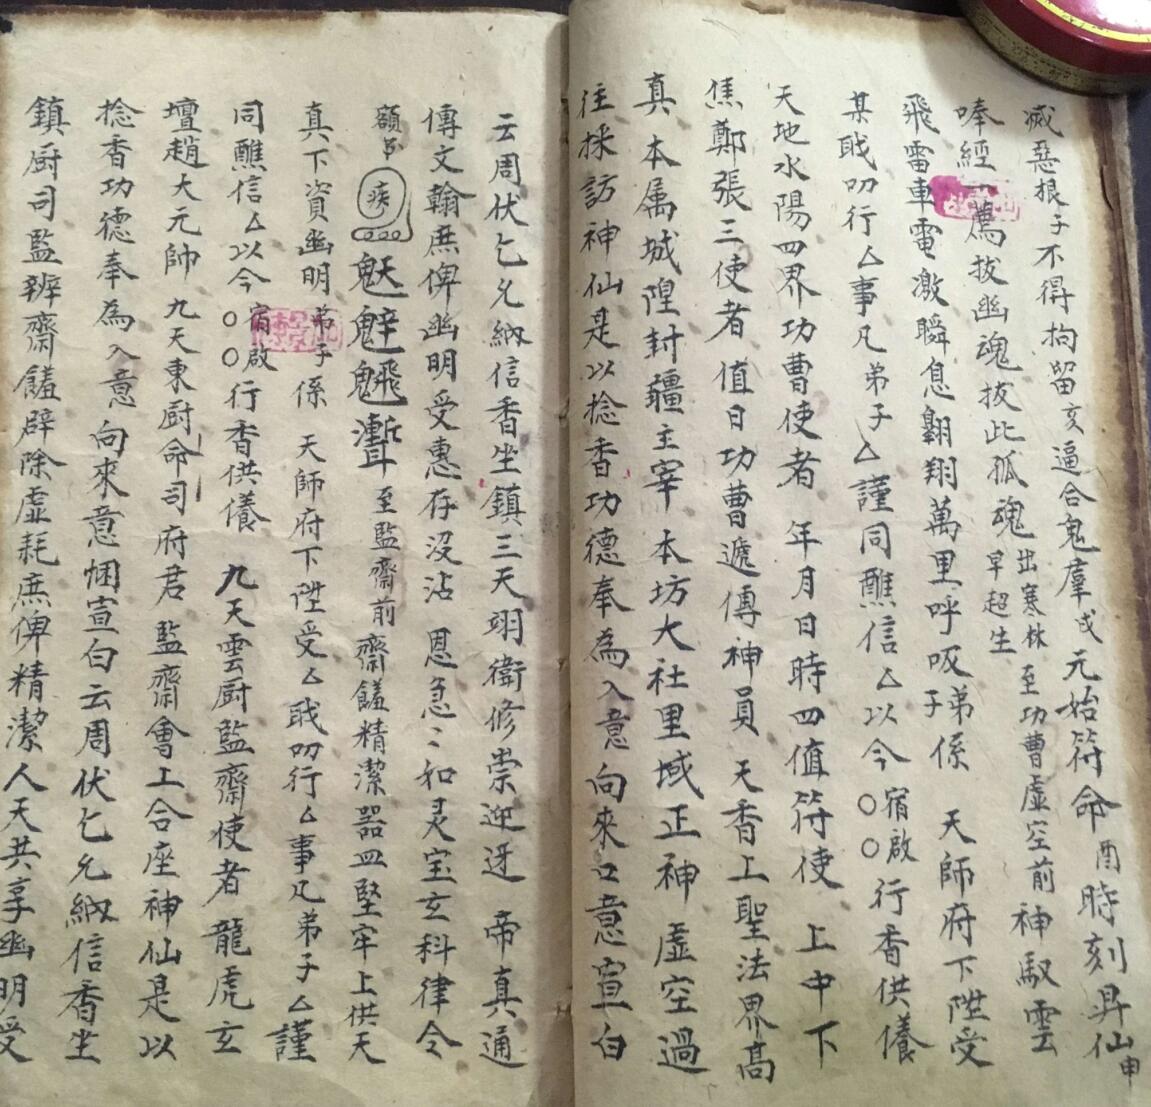 滅惡根子不得拘留亥逼合鬼羣戌元始符命酉時刻昇仙申
唪經一萬拔幽魂拔此孤魂早超生出寒林至功曹虛空前神馭雲
飛雷車電激瞬息翺翔萬里呼吸弟子係 天師府下陞受
某戢叨行厶事凡弟子厶謹同醮信厶以今〇〇宿啟行香供儀
天地水陽四界功曹使者 年月日時四值符使 上中下
焦鄭張三使者 值日功曹遞傳神員 天香上聖法界高
真 本属城隍封疆主宰 本坊大社里域正神 虛空過
往採訪神仙是以捻香功德奉為入意向來口意宣白
云周伏乞允納信香坐鎮三天翊衛修崇迎迓 帝真通
傳文翰庶俾幽明受惠存沒沾 恩急〻如灵宝玄科律令
額 至監齋前齋饈精潔器皿堅牢上供天
真下資幽明弟子係 天師府下陞受厶戢叨行厶事凡弟子厶謹
同醮信厶以今〇〇宿啟行香供儀 九天雲厨監齋使者龍虎玄
壇趙大元帥 九天東厨命司府君 監齋會上合座神仙是以
捻香功德奉為入意向來意悃宣白云周伏乞允納信香坐
鎮厨司監辨齋饈辟除虛耗庶俾精潔人天共享幽明受